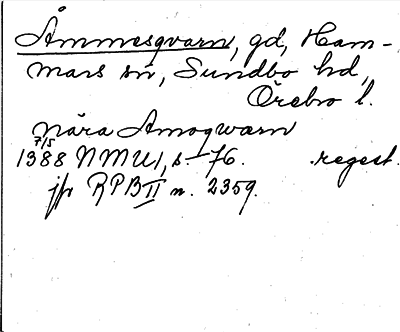 Åmmesqvarn, gd, Ham-
mars sn, Sundbo hd,
Örebro l.
nära Amoqwarn
7/5
1388 NMU1, s. 76. regest.
jfr RPB II n. 2359.